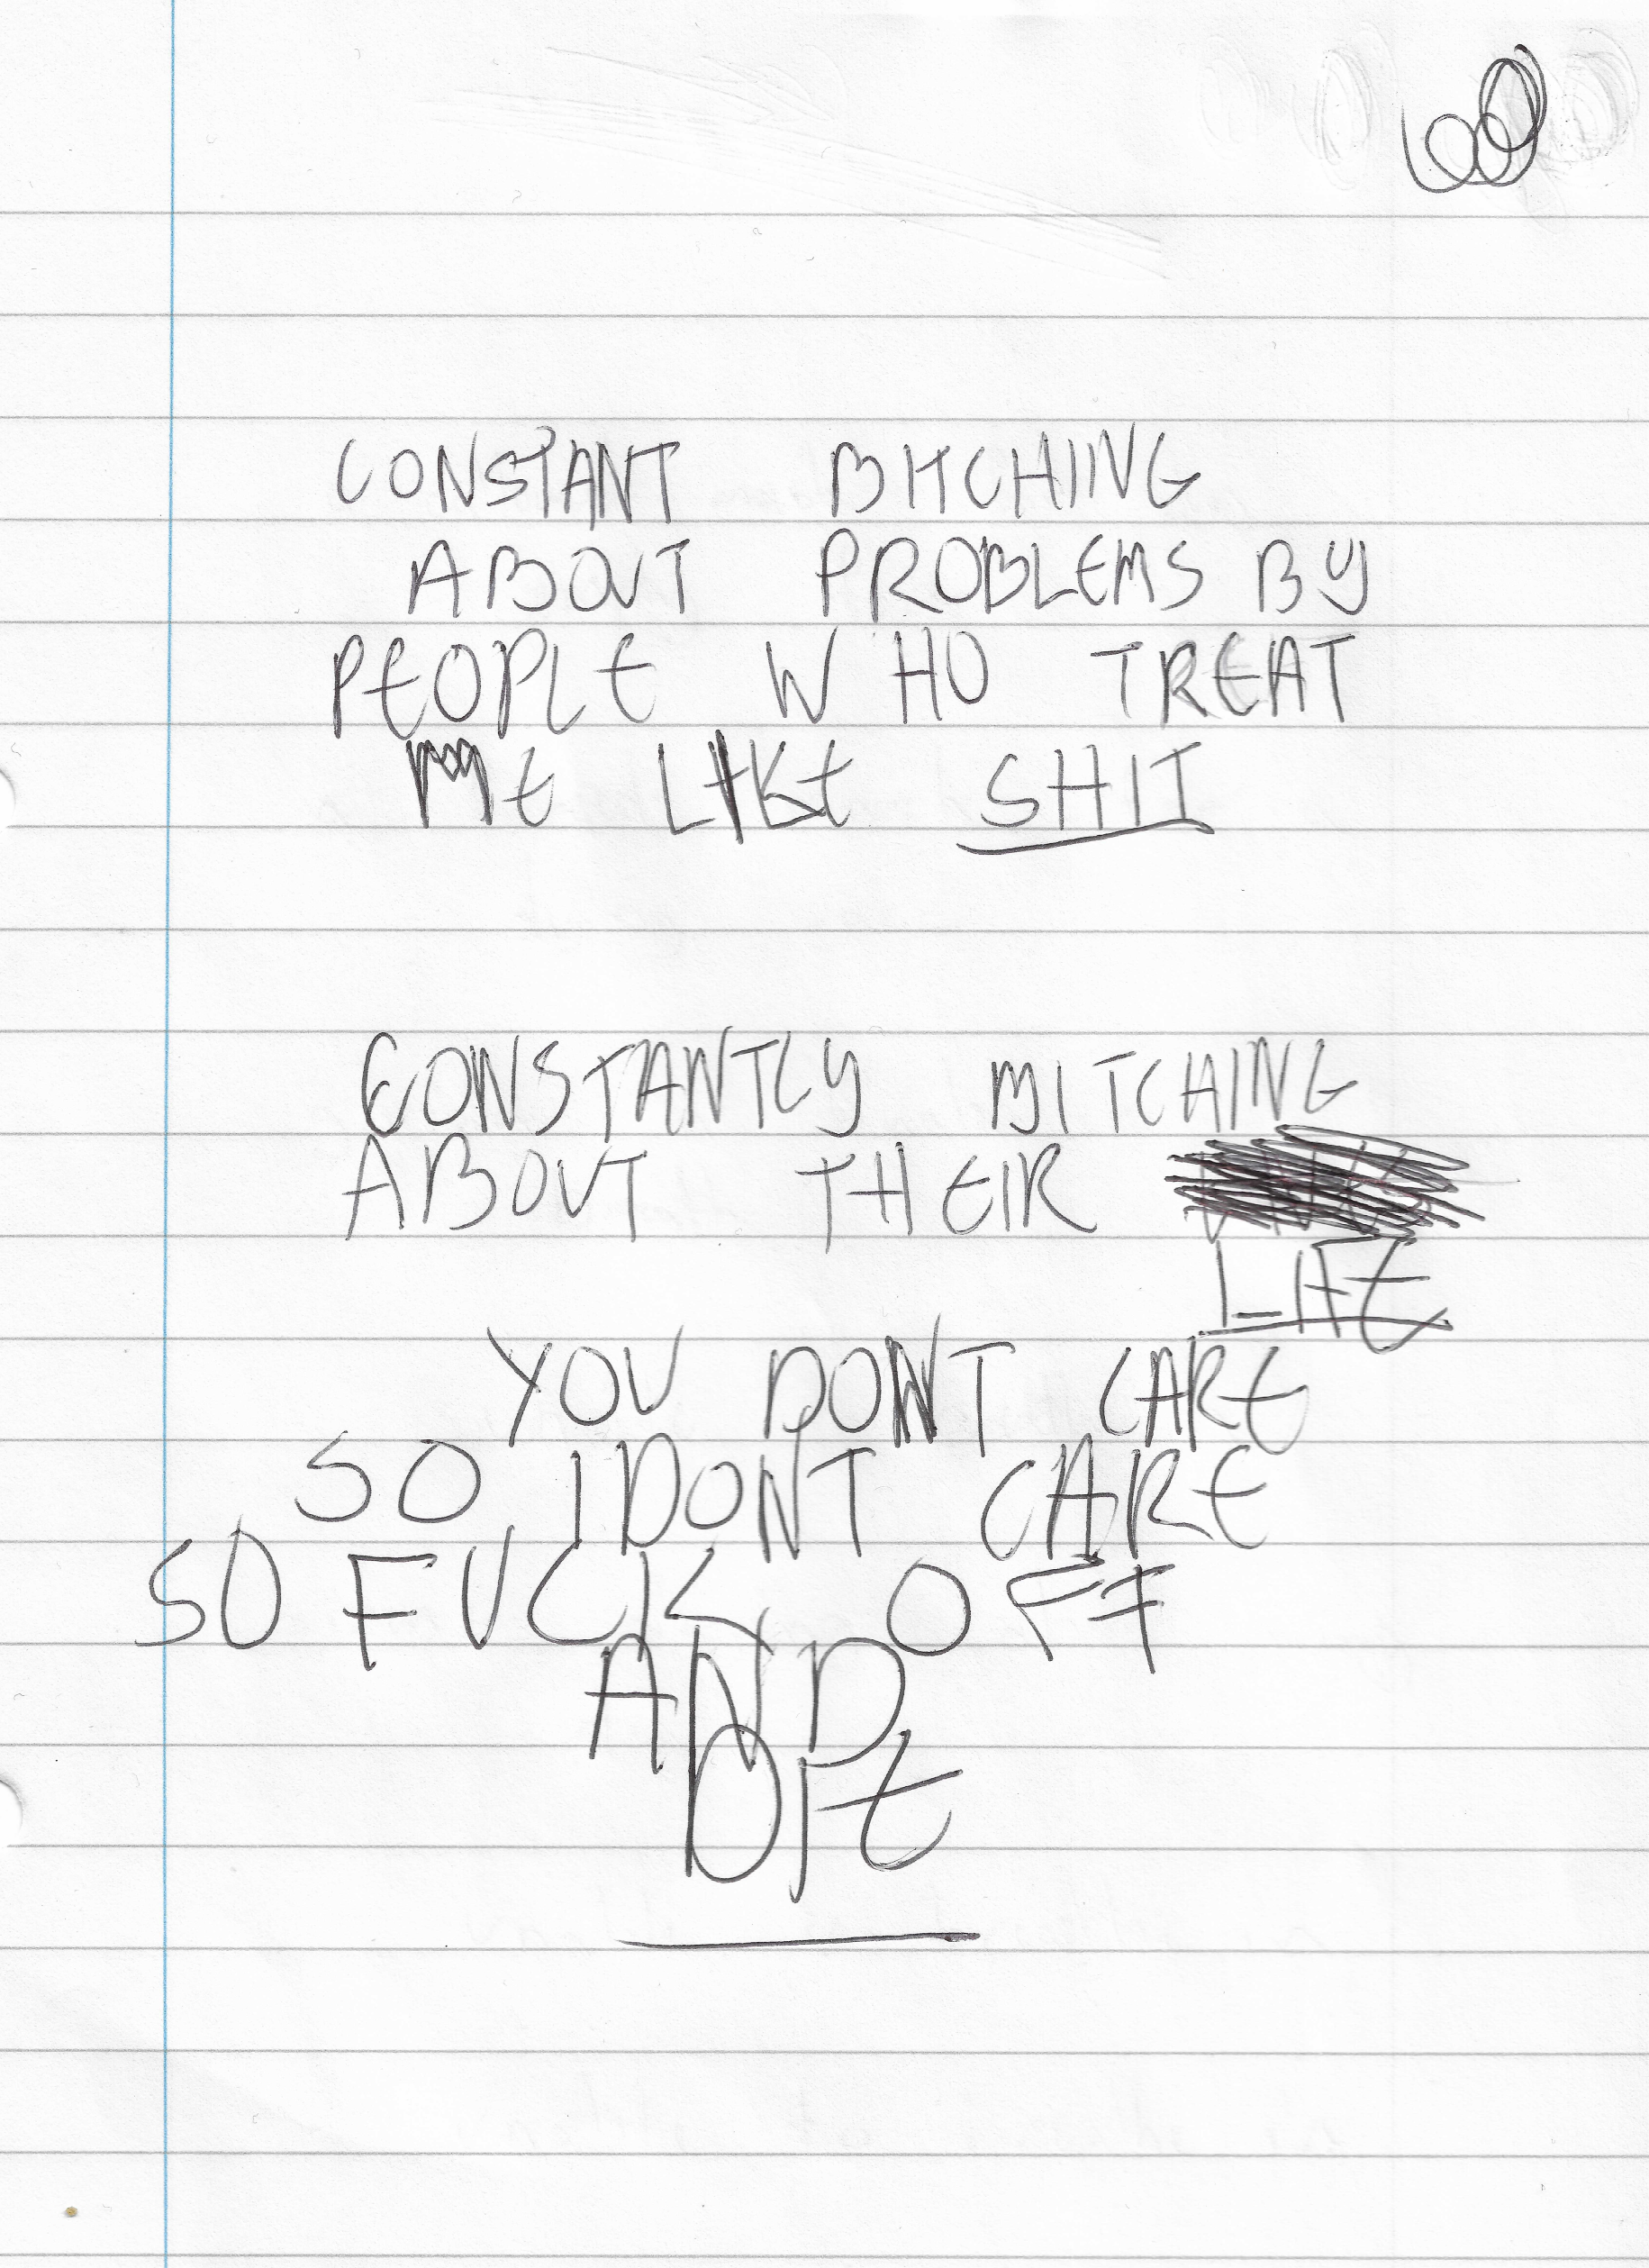 CONSTANT BITCHING
ABOUT PROBLEMS BY
PEOPLE WHO TREAT
ME LIKE SHIT
CONSTANTLY BITCHING
ABOUT THEIR
LIFE
YOU DONT CARE
SO I DONT CARE
SO FUCK OFF
AND
DIE